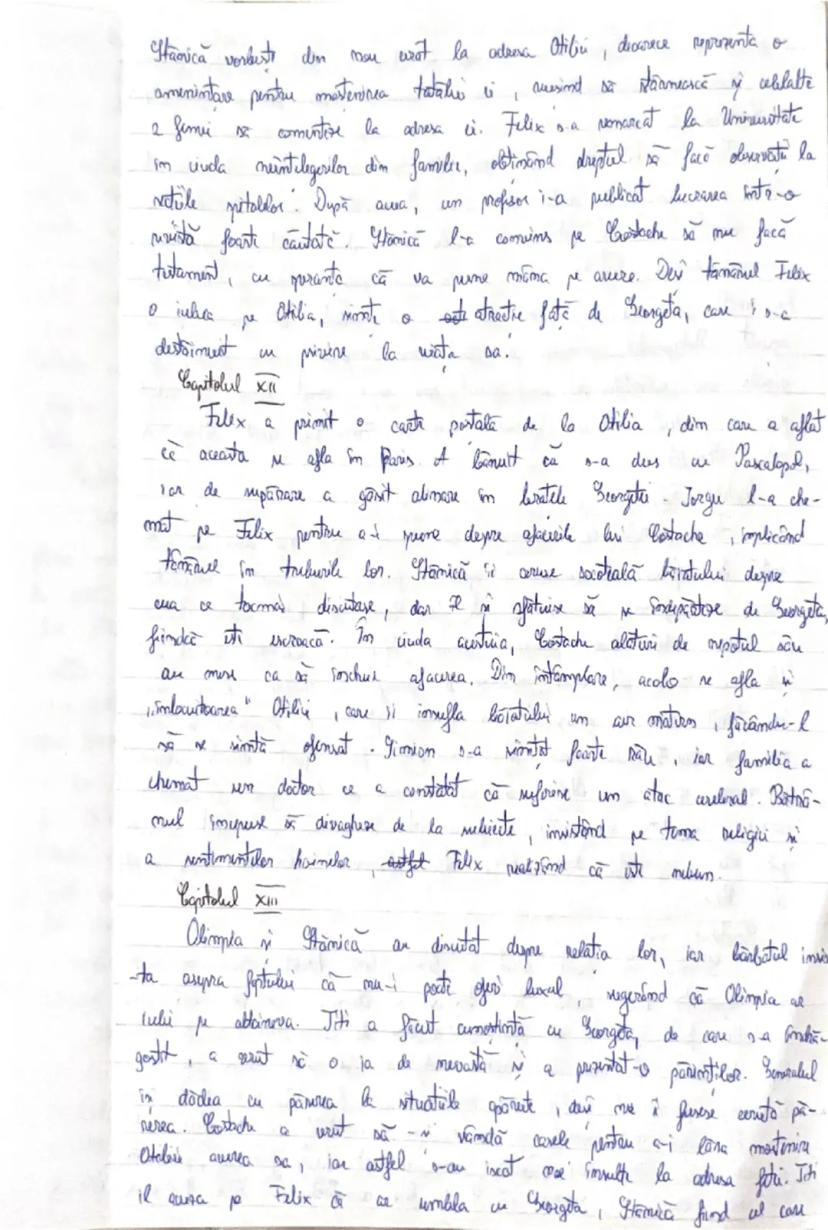 Stănică vorbește din nou urât la adresa Otiliei, deoarece reprezenta o
amenințare pentru moștenirea tatălui ei, reușind să stârnească și celelalte
2 femei să comenteze la adresa ei. Felix s-a remarcat la Universitate
în ciuda neînțelegerilor din familie, obținând dreptul să facă observații la
notele spitalelor. După aceea, un profesor i-a publicat lucrarea într-o
revistă foarte căutată. Stănică l-a convins pe Costache să nu facă
testament, cu speranța că va pune mâna pe avere. Deși tânărul Felix
o iubea pe Otilia, simte o atracție față de Georgeta, care i s-a
destăinuit cu privire la viața sa.
Capitolul XII
Felix a primit o carte poștală de la Otilia, din care a aflat
că aceasta se afla în Paris. A bănuit că s-a dus cu Pascalopol,
iar de supărare a găsit alinare în brațele Georgetei. Iorgu l-a che-
mat pe Felix pentru a-i spune despre afacerile lui Costache, implicând
tânărul în treburile lor. Stănică îi ceruse socoteală băiatului despre
ceea ce tocmai discutase, dar îl și sfătuise să se îndepărteze de Georgeta,
fiindcă este escroacă. În ciuda acestuia, Costache alături de nepotul său
au mers ca să încheie afacerea. Din întâmplare, acolo se afla și
„înlocuitoarea" Otiliei, care îi insufla băiatului un aer matern, făcându-l
să se simtă ofensat. Simion s-a simțit foarte rău, iar familia a
chemat un doctor ce a constatat că suferise un atac cerebral. Bătrâ-
nul începuse să divagheze de la subiecte, insistând pe tema religiei și
a sentimentelor hainelor, Felix realizând că este nebun.
Capitolul XIII
Olimpia și Stănică au discutat despre relația lor, iar bărbatul insis-
ta asupra faptului că nu-i poate oferi luxul, sugerând că Olimpia ar
iubi pe altcineva. Titi a făcut cunoștință cu Georgeta, de care s-a îndră-
gostit, a vrut să o ia de nevastă și a prezentat-o părinților. Generalul
își dădea cu părerea la situațiile apărute, deși nu îi fusese cerută pă-
rerea. Costache a vrut să-și vândă casele pentru a-i lăsa moștenire
Otiliei averea sa, iar astfel s-au iscat noi insulte la adresa fetei. Titi
îl acuza pe Felix că ar umbla cu Georgeta, Stănică fiind cel care